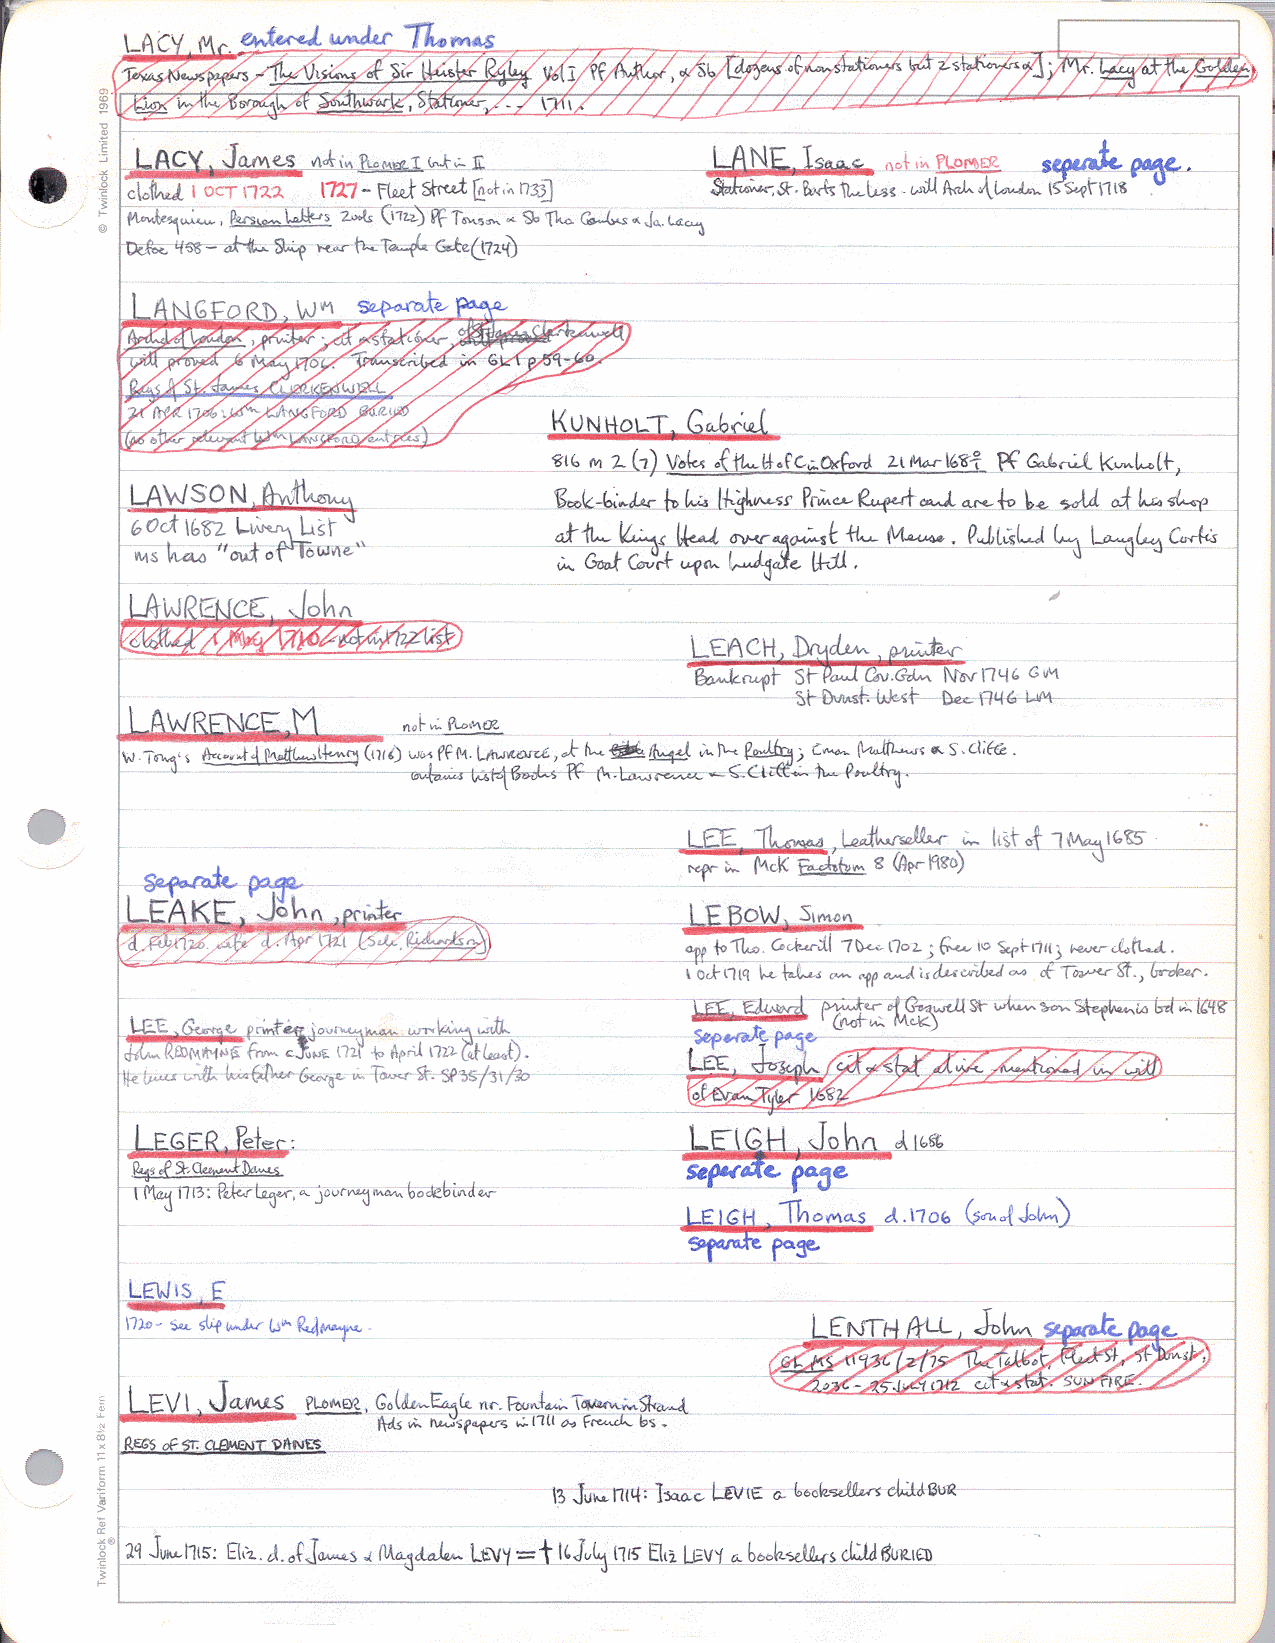 LACY, Mr. entered under Thomas
Texas Newspapers - The Visions of Sir Heister Ryley Vol I PF Author, & Sb [dozens of nonstationers but 2 stationers &]; Mr. Lacy at the Golden
Lion in the Borough of Southwark, Stationer, ... 1711.
LACY, James not in PLOMER I but in II
clothed 1 OCT 1722 1727 - Fleet Street [not in 1733]
Montesquieu, Persian Letters 2 vols (1722) PF Tonson & Sb Tho Combes & Ja. Lacy
Defoe 458 - at the Ship near the Temple Gate (1724)
LANE, Isaac not in PLOMER seperate page.
Stationer, St. Barts the Less - will Arch of London 15 Sept 1718
LANGFORD, Wm separate page
Archd of London, printer; cit & stationer, of Clerkenwell
will proved 6 May 1706. Transcribed in GL 1 p 59-60.
Regs of St. James CLERKENWELL
21 APR 1706: Wm LANGFORD BURIED
(no other relevant Wm LANGFORD entries)
KUNHOLT, Gabriel
816 m 2 (7) Votes of the H of C in Oxford 21 Mar 168 PF Gabriel Kunholt,
Book-binder to his Highness Prince Rupert and are to be sold at his shop
at the Kings Head over against the Meuse. Published by Langley Curtis
in Goat Court upon Ludgate Hill.
LAWSON, Anthony
6 Oct 1682 Livery List
ms has "out of Towne"
LAWRENCE, John
clothed 1 May 1710 - not in 1722 list
LEACH, Dryden, printer
Bankrupt St Paul Cov. Gdn Nov 1746 GM
St Dunst. West Dec 1746 LM
LAWRENCE, M not in PLOMER
W. Tong's Account of Matthew Henry (1716) was PF M. LAWRENCE, at the Angel in the Poultry; Eman Matthews & S. Cliffe.
contains list of Books PF M. Lawrence & S. Cliff in the Poultry.
LEE, Thomas, Leatherseller in list of 7 May 1685
repr in McK Factotum 8 (Apr 1980)
separate page
LEAKE, John, printer
d. Feb 1720. wife d. Apr 1721 (Sale, Richardson)
LEBOW, Simon
app to Tho. Cockerill 7 Dec 1702; free 10 Sept 1711; never clothed.
1 Oct 1719 he takes an app and is described as of Tower St., broker.
LEE, Edward printer of Goswell St when son Stephen is bd in 1648
(not in McK)
LEE, George printer journeyman working with
John REDMAYNE from c. JUNE 1721 to April 1722 (at least).
He lives with his father George in Tower St. SP 35/31/30
seperate page
LEE, Joseph cit & stat alive mentioned in will
of Evan Tyler 1682
LEGER, Peter:
Regs of St. Clement Danes
1 May 1713: Peter Leger, a journeyman bookbinder
LEIGH, John d 1686
seperate page
LEIGH, Thomas d. 1706 (son of John)
separate page
LEWIS, E
1720 - see slip under Wm Redmayne.
LENTHALL, John separate page
GL MS 11936/2/75 The Talbot, Fleet St, St Dunst,
2036 - 25 July 1712 cit & stat. SUN FIRE.
LEVI, James PLOMER, Golden Eagle nr. Fountain Tavern in Strand
Ads in newspapers in 1711 as French bs.
REGS OF ST. CLEMENT DANES
13 June 1714: Isaac LEVIE a booksellers child BUR
29 June 1715: Eliz. d. of James & Magdalen LEVY = † 16 July 1715 Eliz LEVY a booksellers child BURIED
© Twinlock Limited 1969
Twinlock Ref Variform 11 x 8½ Feint